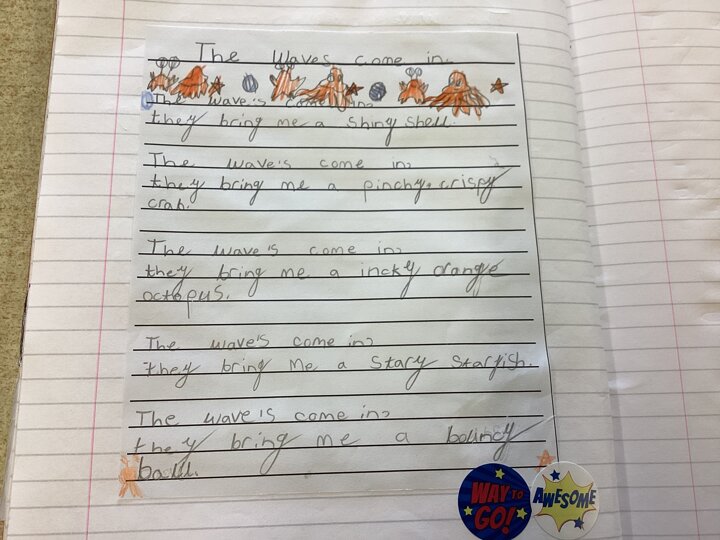 The Waves come in.
The wave's come in,
they bring me a shiny shell.
The wave's come in,
they bring me a pinchy, crispy
crab.
The wave's come in,
they bring me a incky orange
octopus.
The wave's come in,
they bring me a stary starfish.
The wave's come in,
they bring me a bouncy
ball.
WAY TO GO!
AWESOME